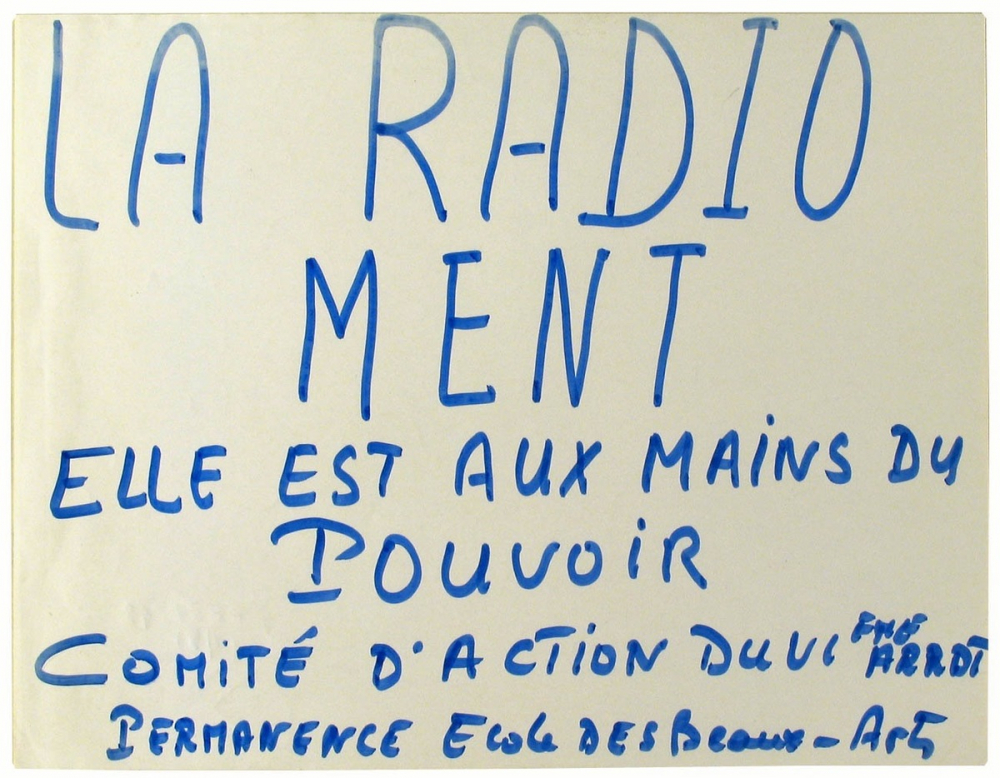 LA RADIO
MENT
ELLE EST AUX MAINS DU
POUVOIR
COMITÉ D'ACTION DU VI EME ARRDT
PERMANENCE Ecole DES Beaux-Arts